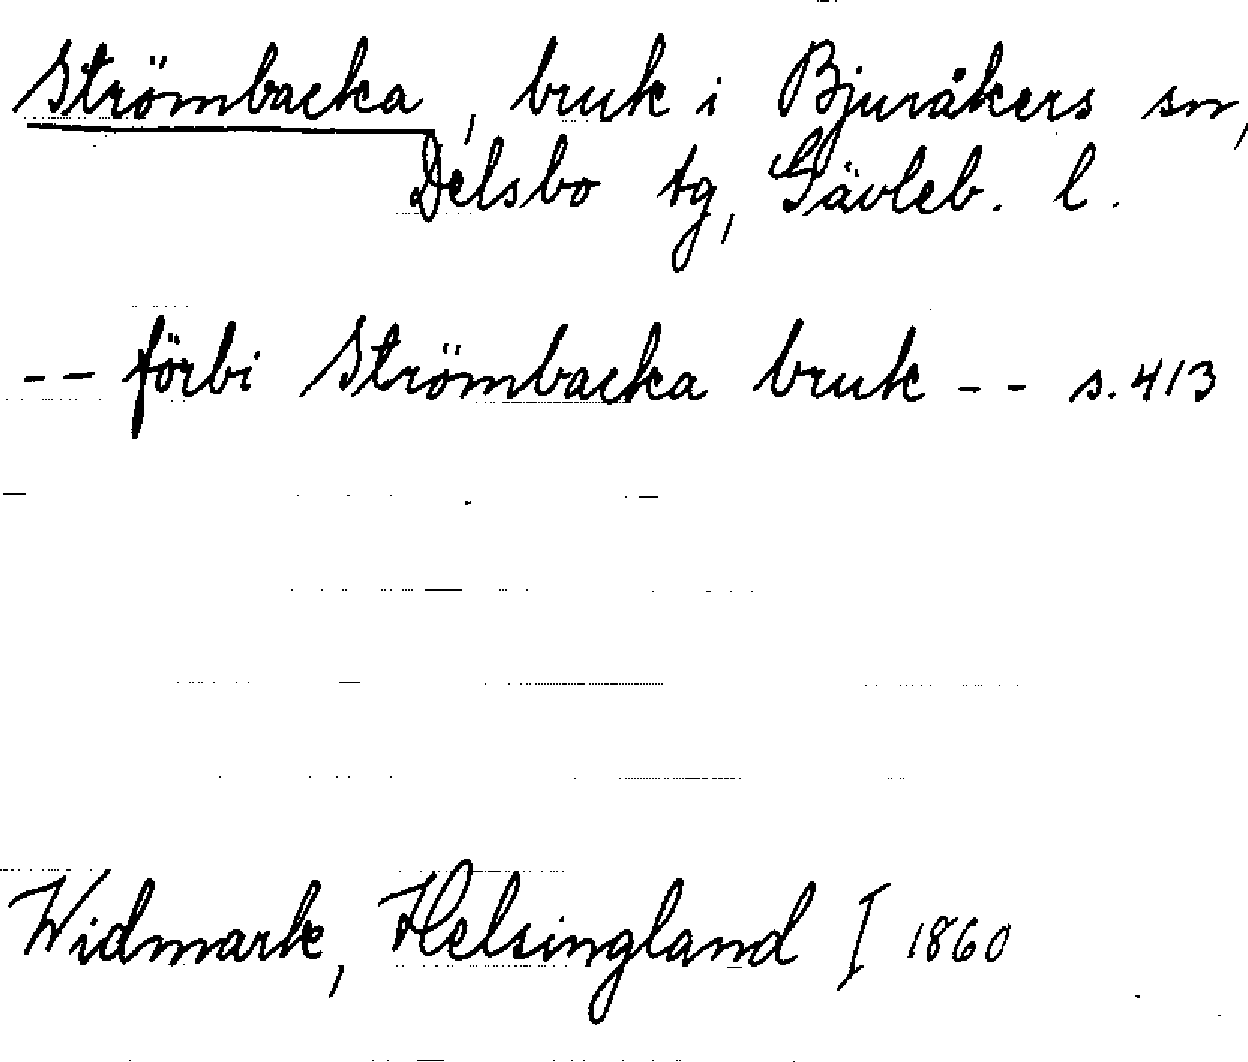 Strömbacka, bruk i Bjuråkers sn,
Delsbo tg, Gävleb. l.
-- förbi Strömbacka bruk -- s. 413
Widmark, Helsingland I 1860